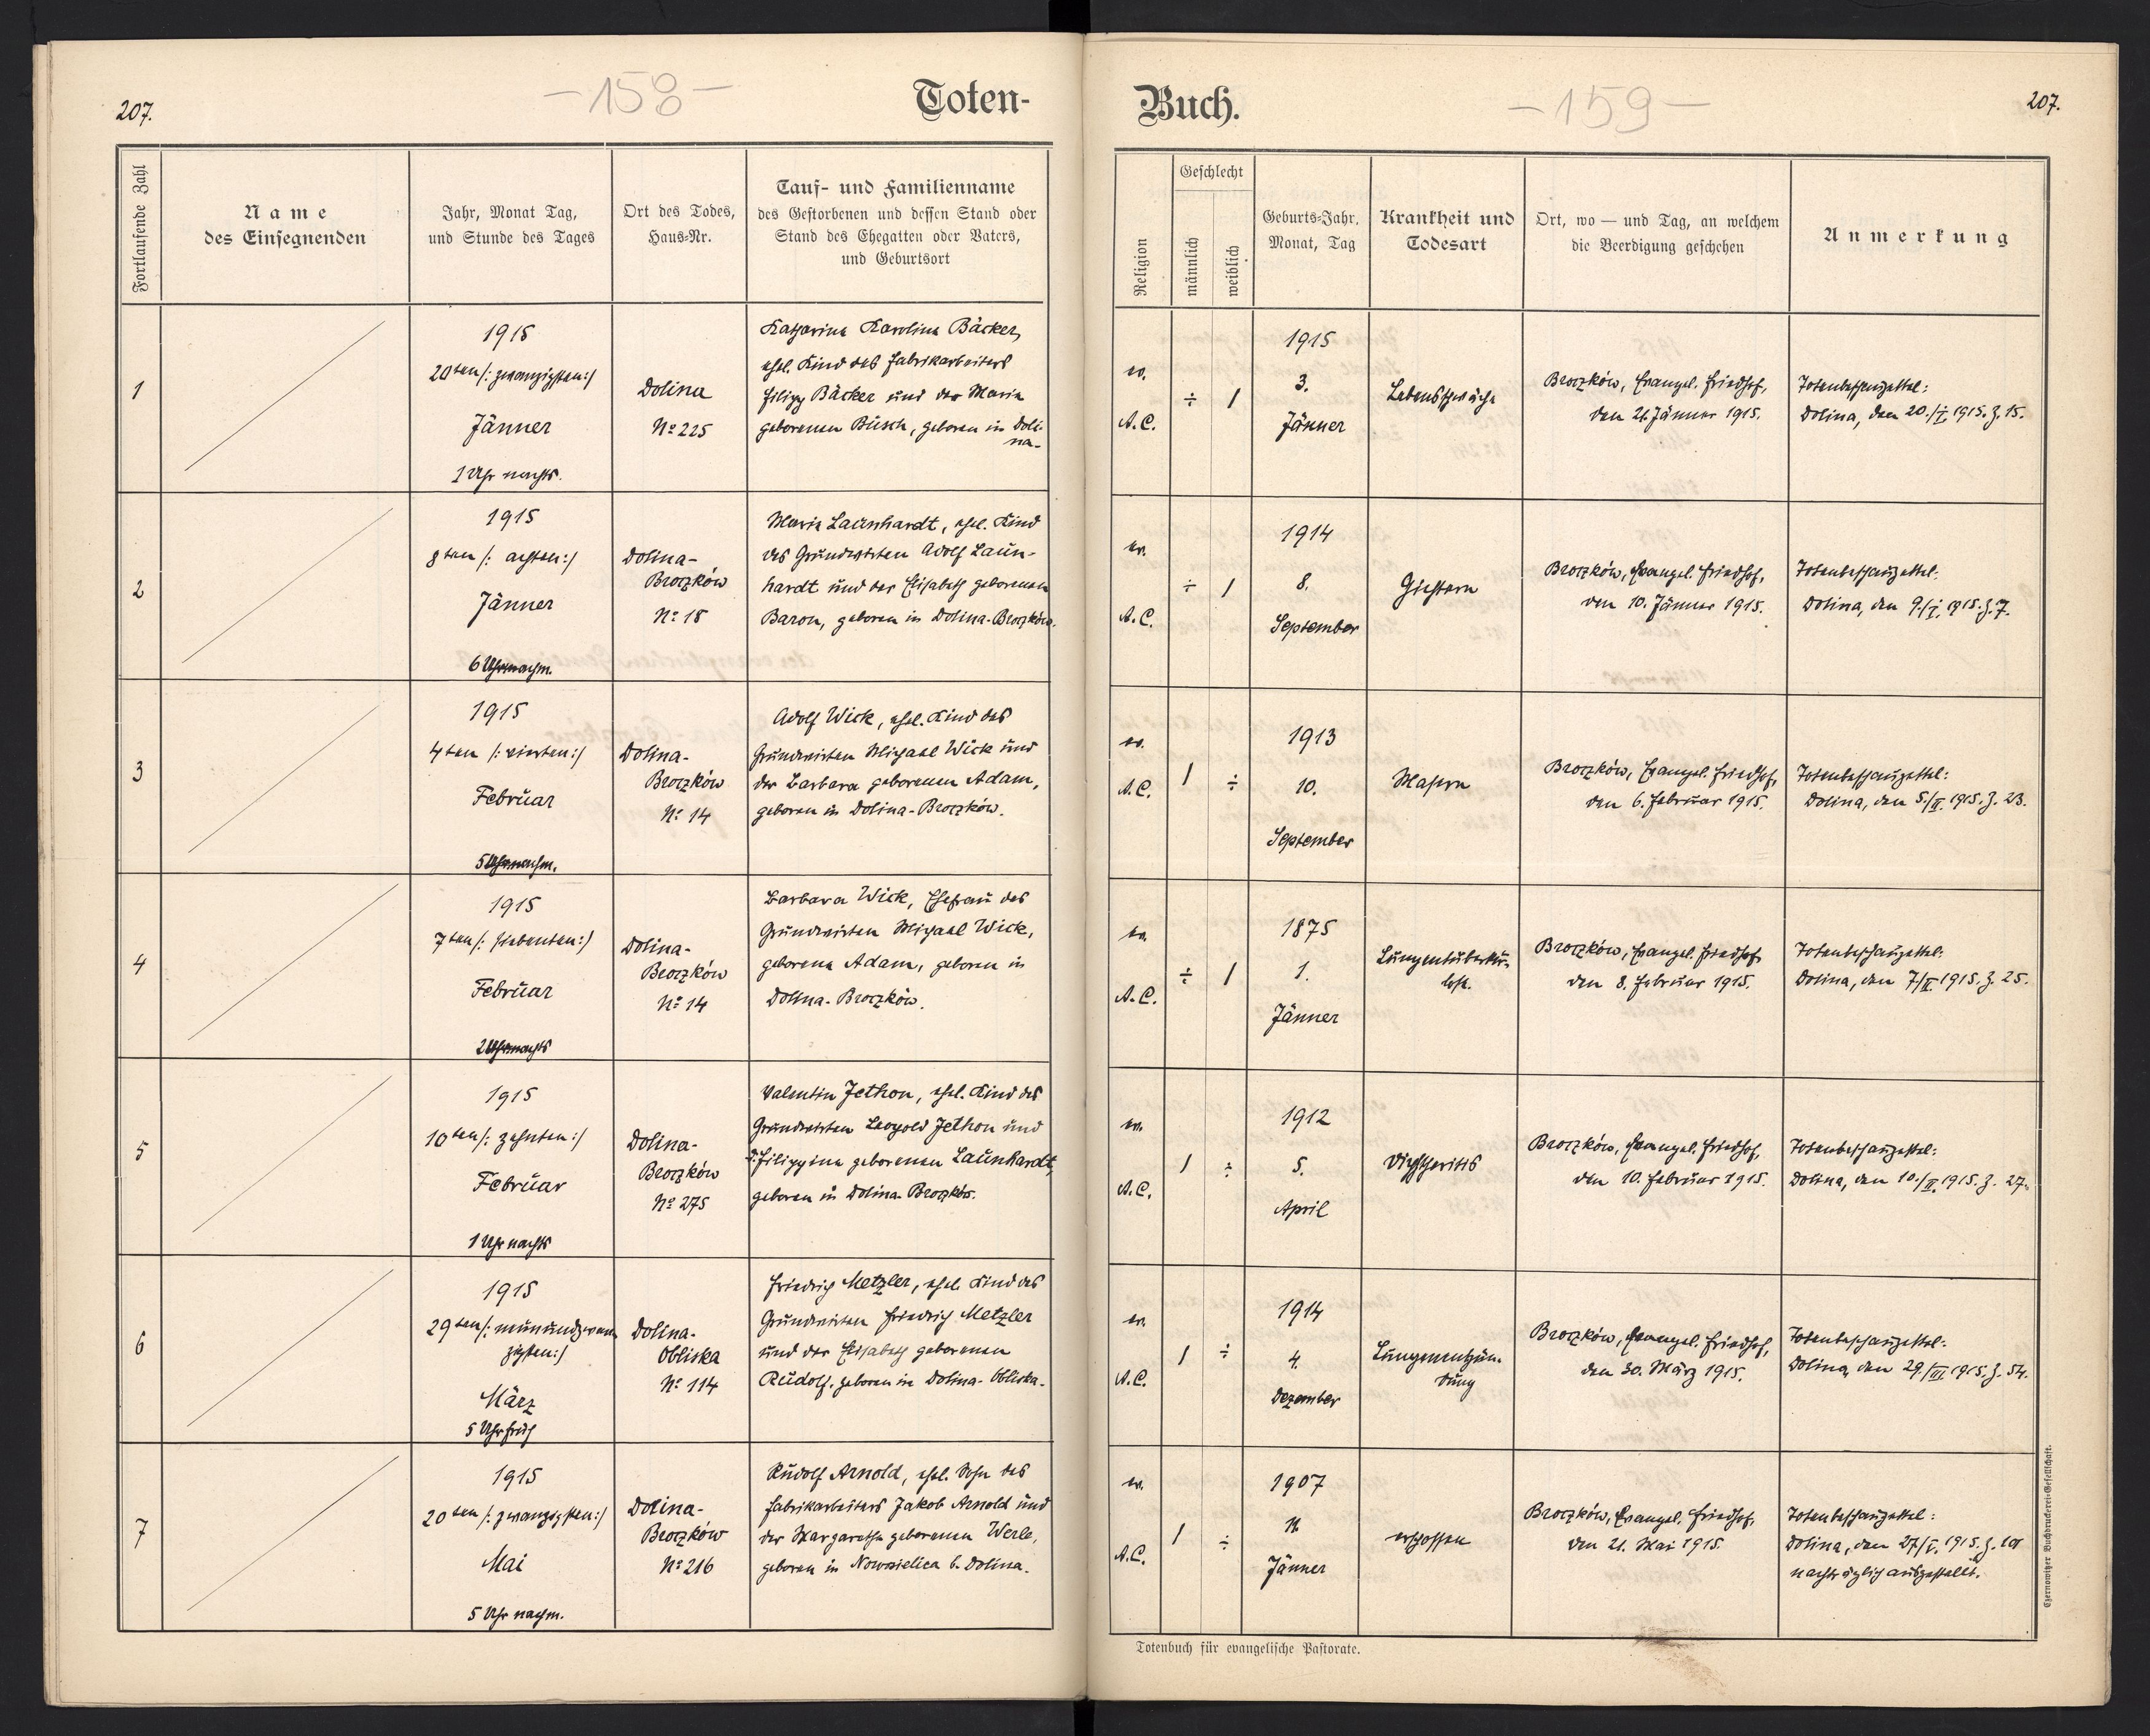 207.
-158-
Toten-
Fortlaufende Zahl
Name
des Einsegnenden
Jahr, Monat Tag,
und Stunde des Tages
Ort des Todes,
Haus-Nr.
Tauf- und Familienname
des Gestorbenen und dessen Stand oder
Stand des Ehegatten oder Vaters,
und Geburtsort
1
1915
20ten /: zwanzigsten :/
Jänner
1 Uhr nachts.
Dolina
No 225
Katharina Karolina Bäcker,
ehel. Kind des Fabrikarbeiters
Filipp Bäcker und der Maria
geborenen Busch, geboren in Doli-
na-
2
1915
8ten /: achten :/
Jänner
6 Uhr nachm.
Dolina-
Broczków
No 18
Maria Launhardt, ehel. Kind
des Grundwirten Adolf Laun-
hardt und der Elisabeth geborenen
Baron, geboren in Dolina-Broczków.
3
1915
4ten /: vierten :/
Februar
5 Uhr nachm.
Dolina-
Broczków
No 14
Adolf Wick, ehel. Kind des
Grundwirten Michael Wick und
der Barbara geborenen Adam,
geboren in Dolina-Broczków.
4
1915
7ten /: siebenten :/
Februar
2 Uhr nachts
Dolina-
Broczków
No 14
Barbara Wick, Ehefrau des
Grundwirten Michael Wick,
geborene Adam, geboren in
Dolina-Broczków.
5
1915
10ten /: zehnten :/
Februar
1 Uhr nachts
Dolina-
Broczków
No 275
Valentin Jethon, ehel. Kind des
Grundwirten Leopold Jethon und
d. Filippine geborenen Launhardt,
geboren in Dolina-Broczków.
6
1915
29ten /: neunundzwan-
zigsten :/
März
5 Uhr früh
Dolina-
Obliska
No 114
Friedrich Metzler, ehel. Kind des
Grundwirten Friedrich Metzler
und der Elisabeth geborenen
Rudolf, geboren in Dolina-Obliska.
7
1915
20ten /: zwanzigsten :/
Mai
5 Uhr nachm.
Dolina-
Broczków
No 216
Rudolf Arnold, ehel. Sohn des
Fabrikarbeiters Jakob Arnold und
der Margarethe geborenen Werle,
geboren in Nowosielica b. Dolina.
Buch.
-159-
207.
Religion
Geschlecht
männlich
weiblich
Geburts-Jahr,
Monat, Tag
Krankheit und
Todesart
Ort, wo — und Tag, an welchem
die Beerdigung geschehen
Anmerkung
ev.
A.C.
÷
1
1915
3.
Jänner
Lebensschwäche
Broczków, Evangel. Friedhof,
den 21. Jänner 1915.
Totenbeschauzettel:
Dolina, den 20./I. 1915. Z. 15.
ev.
A.C.
÷
1
1914
8.
September
Gichtern
Broczków, Evangel. Friedhof,
den 10. Jänner 1915.
Totenbeschauzettel:
Dolina, den 9./I. 1915. Z. 7.
ev.
A.C.
1
÷
1913
10.
September
Masern
Broczków, Evangel. Friedhof,
den 6. Februar 1915.
Totenbeschauzettel:
Dolina, den 5./II. 1915. Z. 23.
ev.
A.C.
÷
1
1875
1.
Jänner
Lungentuberku-
lose.
Broczków, Evangel. Friedhof
den 8. Februar 1915.
Totenbeschauzettel:
Dolina, den 7/II. 1915. Z. 25.
ev.
A.C.
1
÷
1912
5.
April
Diphtheritis
Broczków, Evangel. Friedhof,
den 10. Februar 1915.
Totenbeschauzettel:
Dolina, den 10./II. 1915. Z. 27.
ev.
A.C.
1
÷
1914
4.
Dezember
Lungenentzün-
dung
Broczków, Evangel. Friedhof,
den 30. März 1915.
Totenbeschauzettel:
Dolina, den 29./III. 1915. Z. 54.
ev.
A.C.
1
÷
1907
Jänner
erschossen
Broczków, Evangel. Friedhof,
den 21. Mai 1915.
Totenbeschauzettel:
Dolina, den 27/V. 1915. Z.
nachträglich ausgestellt.
Totenbuch für evangelische Pastorate.
Czernowitzer Buchdruckerei-Gesellschaft.